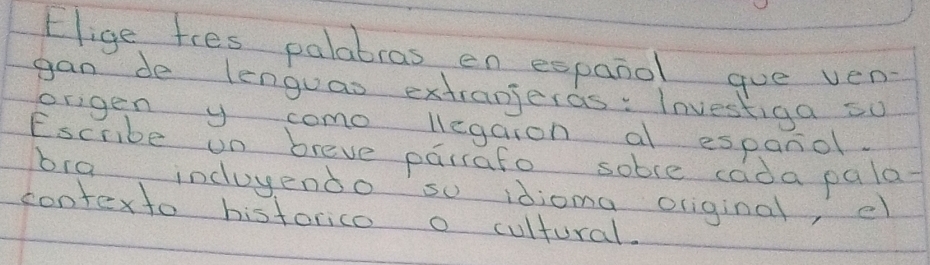 Elige tres palabras en español que ven-
gan de lenguas extranjeras: Investiga su
origen y como llegaron al español.
Escribe un breve párrafo sobre cada pala-
bra incluyendo su idioma original, el
contexto historico o cultural.